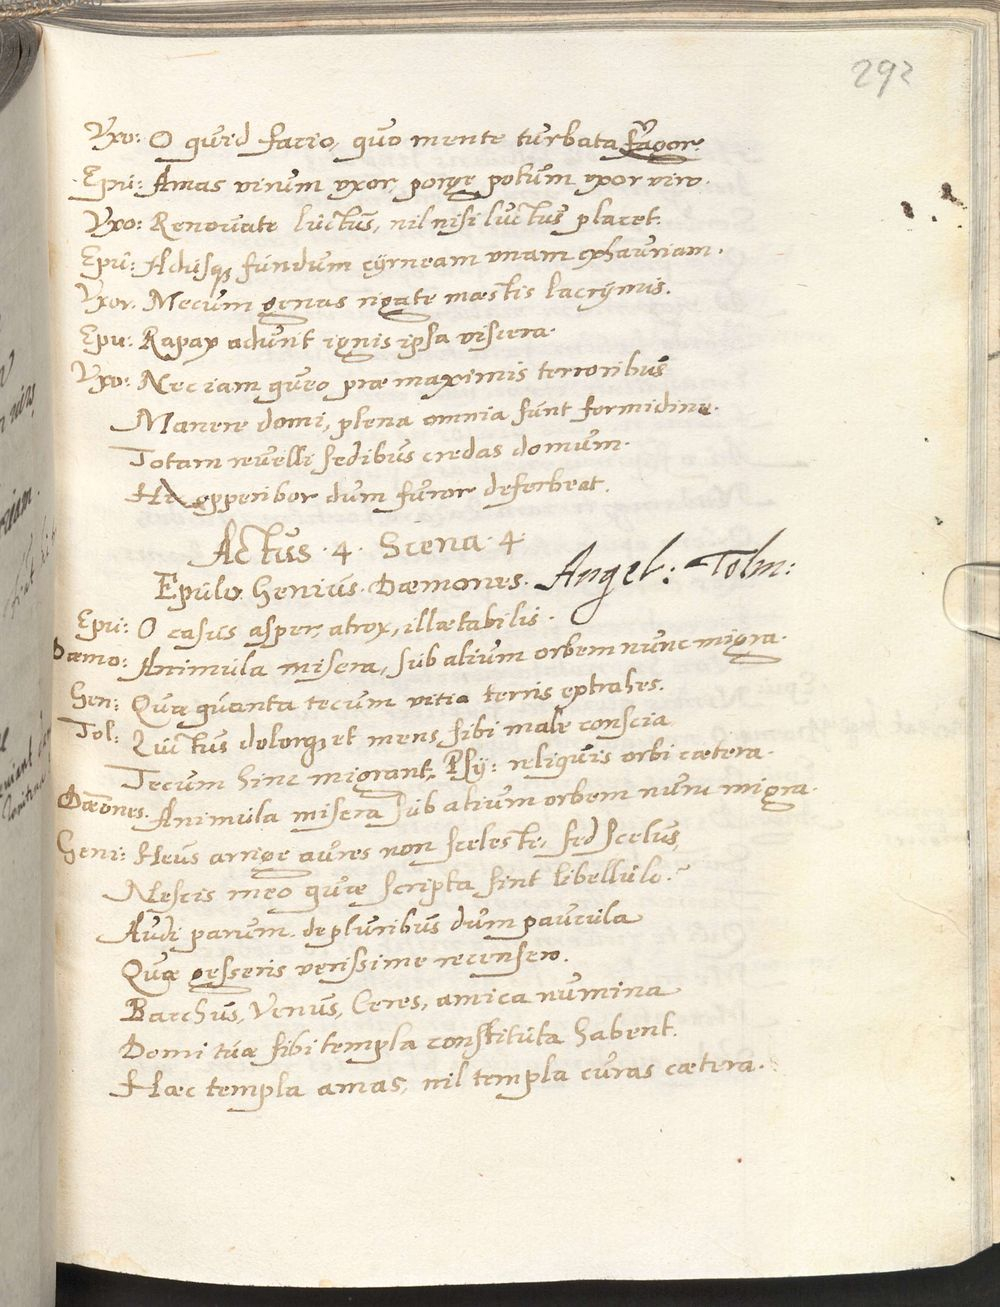 292
Vxo: O quid facio, quo mente turbata feror.
Epu: Amas vinum vxor, porge potum vxor viro.
Vxo: Renouate luctus, nil nisi luctus placet.
Epu: Adusq; fundum cyrneam vnam exhauriam.
Vxor. Mecum genas rigate mæstis lacrymis.
Epu: Rapax adurit ignis ipsa viscera.
Vxo: Nec iam queo præ maximis terroribus
Manere domi, plena omnia sunt formidine.
Totam reuelli sedibus credas domum.
Hic opperibor dum furor deferbeat.
Actus 4. Scena 4
Epulo. Genius. Dæmones. Angel: Tolm:
Epu: O casus asper, atrox, illætabilis.
Dæmo: Animula misera, sub alium orbem nunc migra.
Gen: Quæ quanta tecum vitia terris extrahes.
Tol: Luctus dolorq; et mens sibi male conscia
Tecum hinc migrant, Psy: reliquis orbi cætera.
Dæones. Animula misera sub alium orbem nunc migra.
Geni: Heus arrige aures non sceleste, sed scelus,
Nescis meo quæ scripta sint libellulo?
Audi parum de pluribus dum paucula
Quæ gesseris verissime recensero.
Bacchus, Venus, Ceres, amica numina
Domi tuæ sibi templa constituta habent.
Hæc templa amas, nil templa curas cætera.